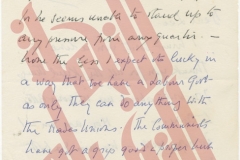 he seems unable to stand up to
any pressure from any quarter. —
None the less I expect its lucky in
a way that we have a Labour Govt
as only they can do anything with
the Trades Unions. The Communists
have got a grip